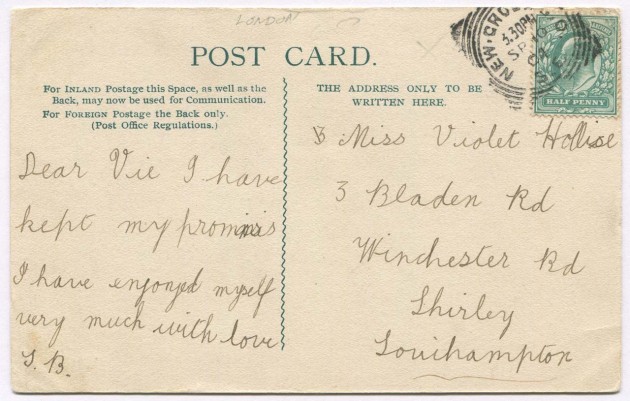 LONDON
POST CARD.
For INLAND Postage this Space, as well as the
Back, may now be used for Communication.
For FOREIGN Postage the Back only.
(Post Office Regulations.)
THE ADDRESS ONLY TO BE
WRITTEN HERE.
NEW-CROSS
3.30PM
SP 10
04
S.E
HALF PENNY
Dear Vie I have
kept my promis
I have enjonged myself
very much with love
S.B.
Miss Violet
3 Bladen Rd
Winchester Rd
Shirley
Southampton